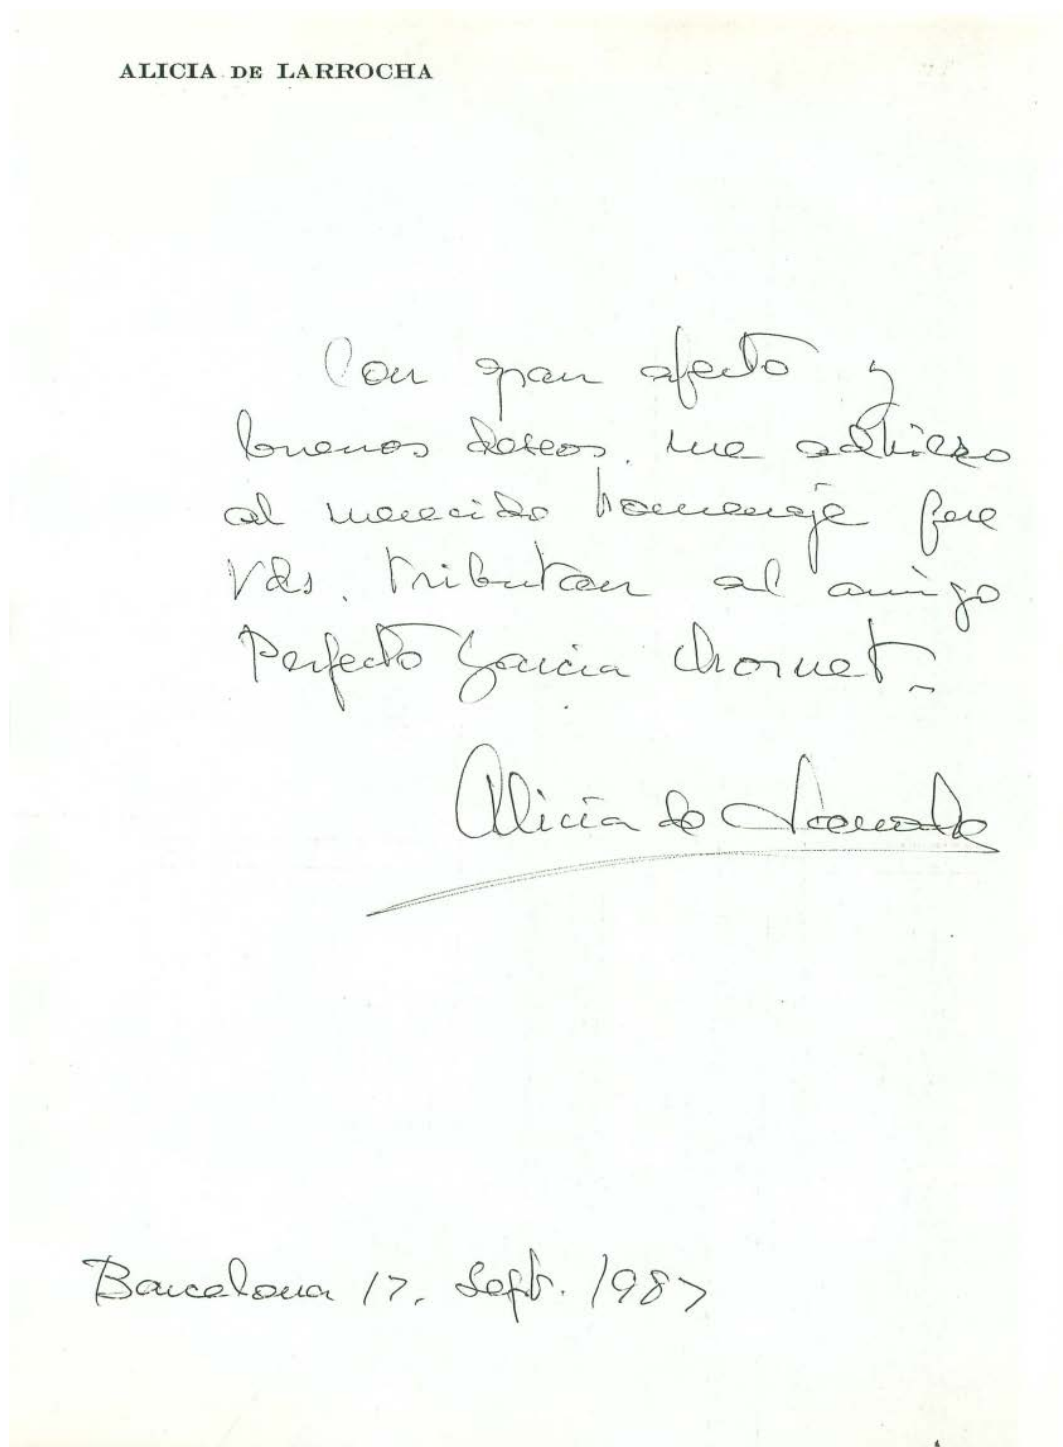 ALICIA DE LARROCHA
Con gran afecto y
buenos deseos, me adhiero
al merecido homenaje que
Vds. tributan al amigo
Perfecto García Chornet.
Alicia de Larrocha
Barcelona 17. Sept. 1987